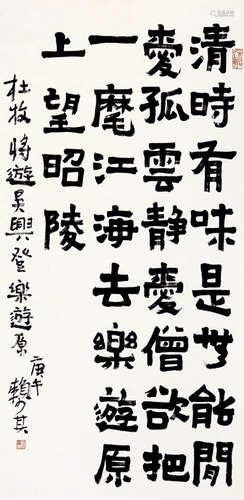 清時有味是無能閒
愛孤雲靜愛僧欲把
一麾江海去樂遊原
上望昭陵
杜牧將遊吳興登樂遊原 庚午 賴少其